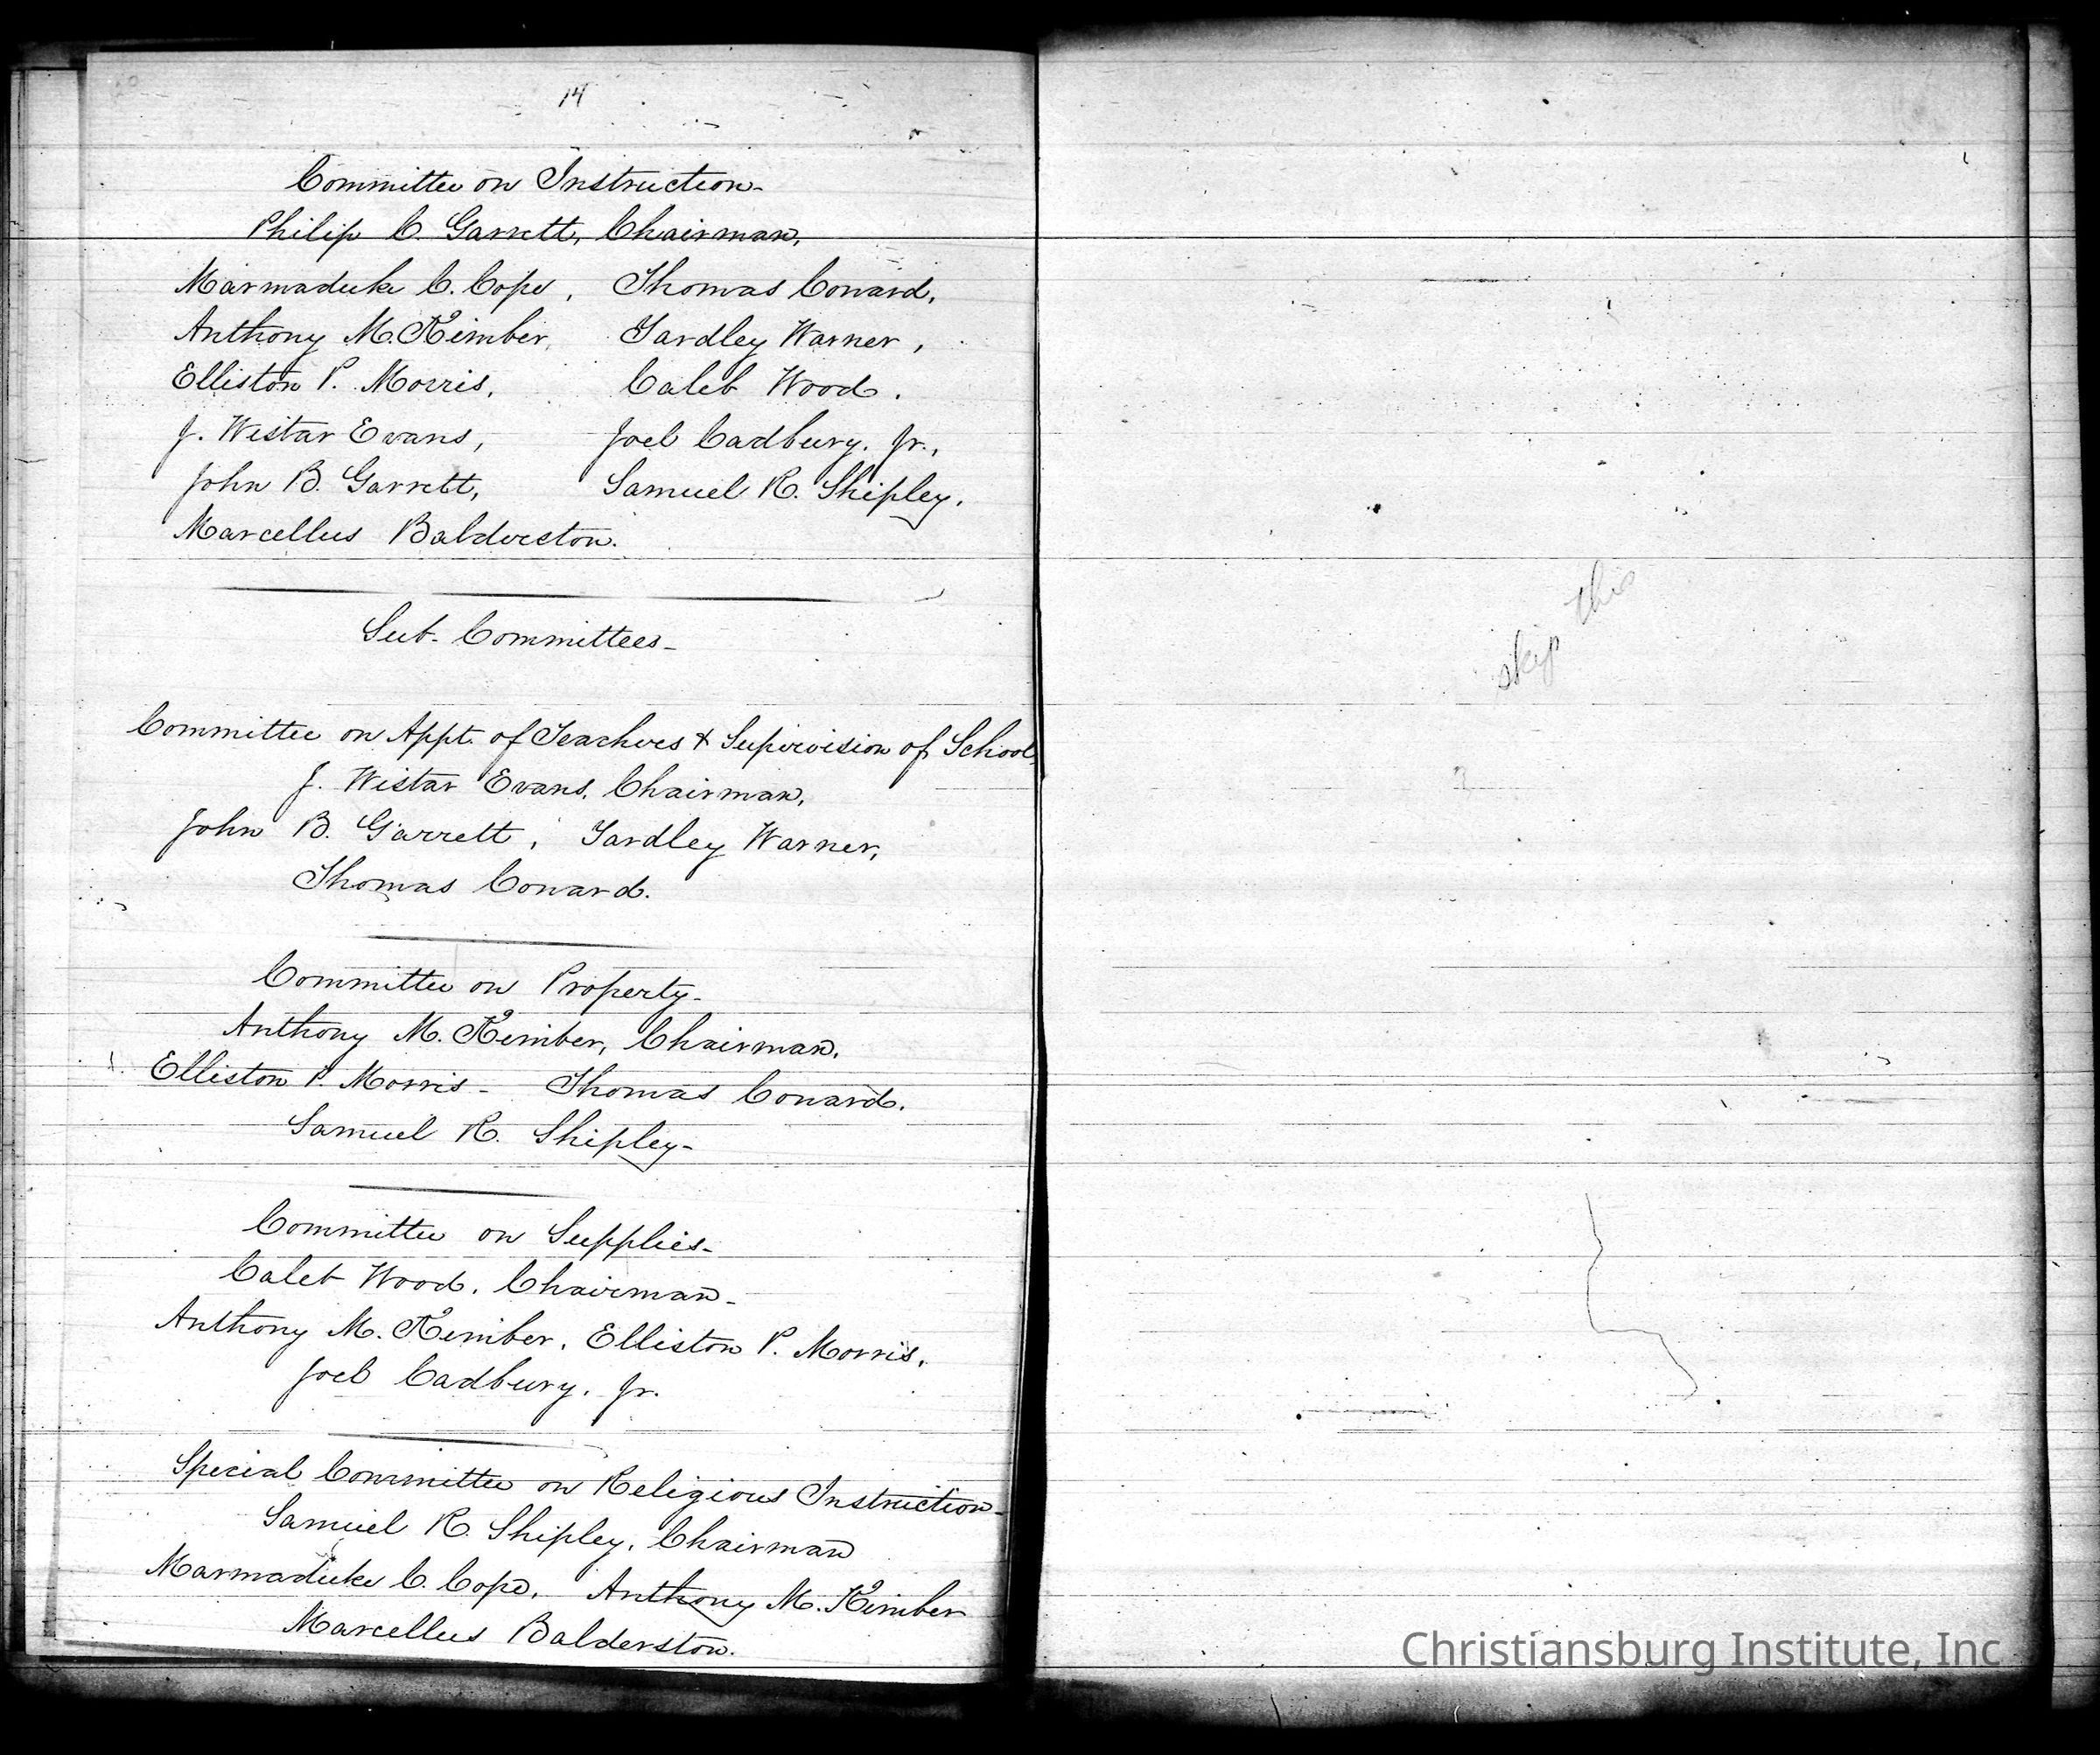 14
Committee on Instruction-
Philip C. Garrett, Chairman,
Marmaduke C. Cope, Thomas Conard,
Anthony M. Kimber, Yardley Warner,
Elliston P. Morris, Caleb Wood.
J. Wistar Evans, Joel Cadbury, Jr.,
John B. Garrett, Samuel R. Shipley.
Marcellus Balderston.
Sub-Committees-
Committee on Appt. of Teachers & Supervision of School
J. Wistar Evans, Chairman,
John B. Garrett, Yardley Warner,
Thomas Conard.
Committee on Property-
Anthony M. Kimber, Chairman.
Elliston P. Morris- Thomas Conard.
Samuel R. Shipley-
Committee on Supplies-
Caleb Wood, Chairman-
Anthony M. Kimber, Elliston P. Morris,
Joel Cadbury, Jr.
Special Committee on Religious Instruction-
Samuel R. Shipley, Chairman
Marmaduke C. Cope, Anthony M. Kimber
Marcellus Balderston.
skip this
Christiansburg Institute, Inc